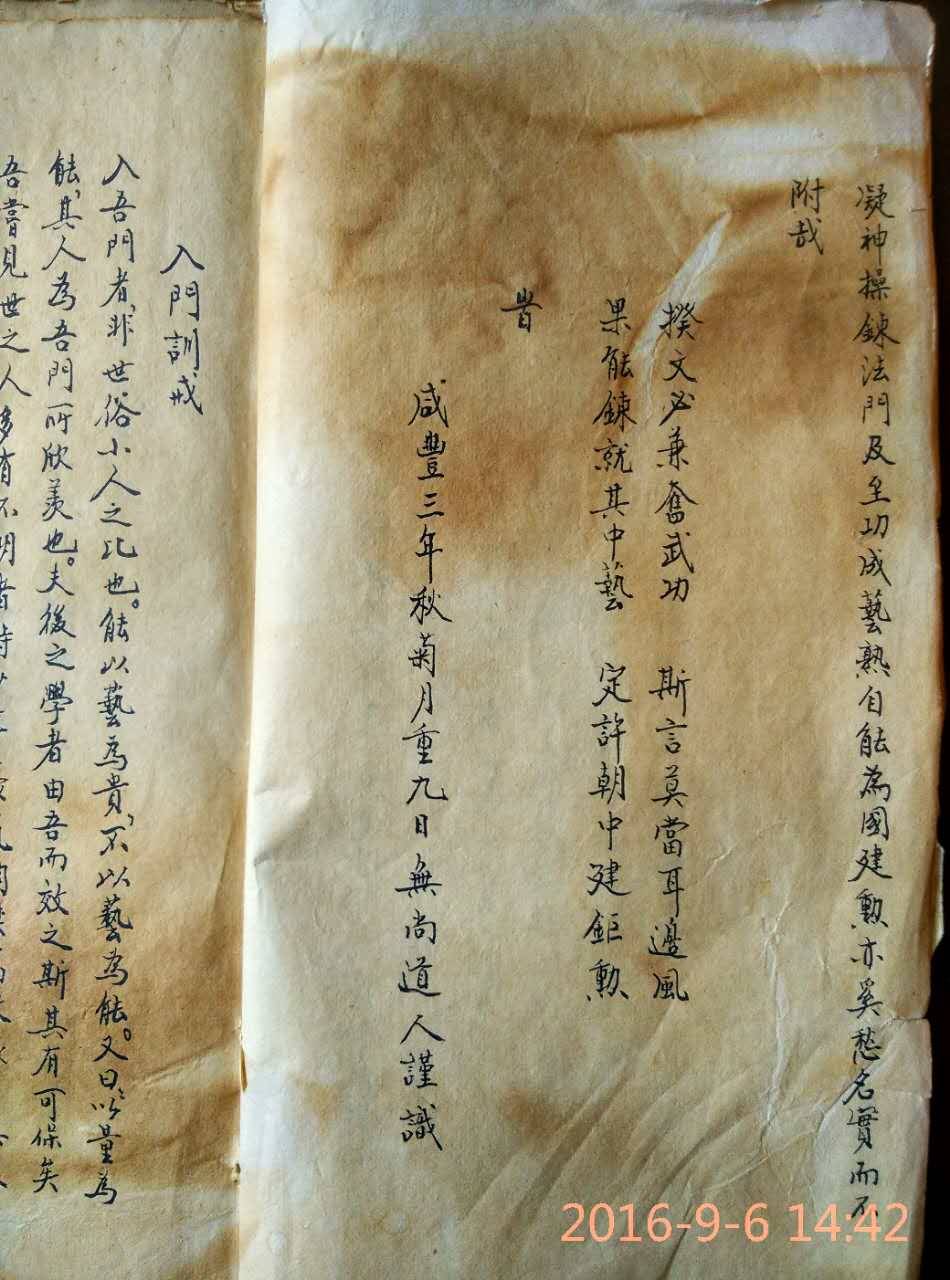 凝神操鍊法門及至功成藝熟自能為國建勲亦奚愁名實而不
附哉
揆文必兼奮武功 斯言莫當耳邊風
果能鍊就其中藝 定許朝中建鉅勲
旹
咸豐三年秋菊月重九日無尚道人謹識
入門訓戒
入吾門者,非世俗小人之比也。能以藝為貴,不以藝為能。又曰:以量為
能,其人為吾門所欣羨也。夫後之學者由吾而效之斯其有可保矣
吾嘗見世之人多有不明者
2016-9-6 14:42